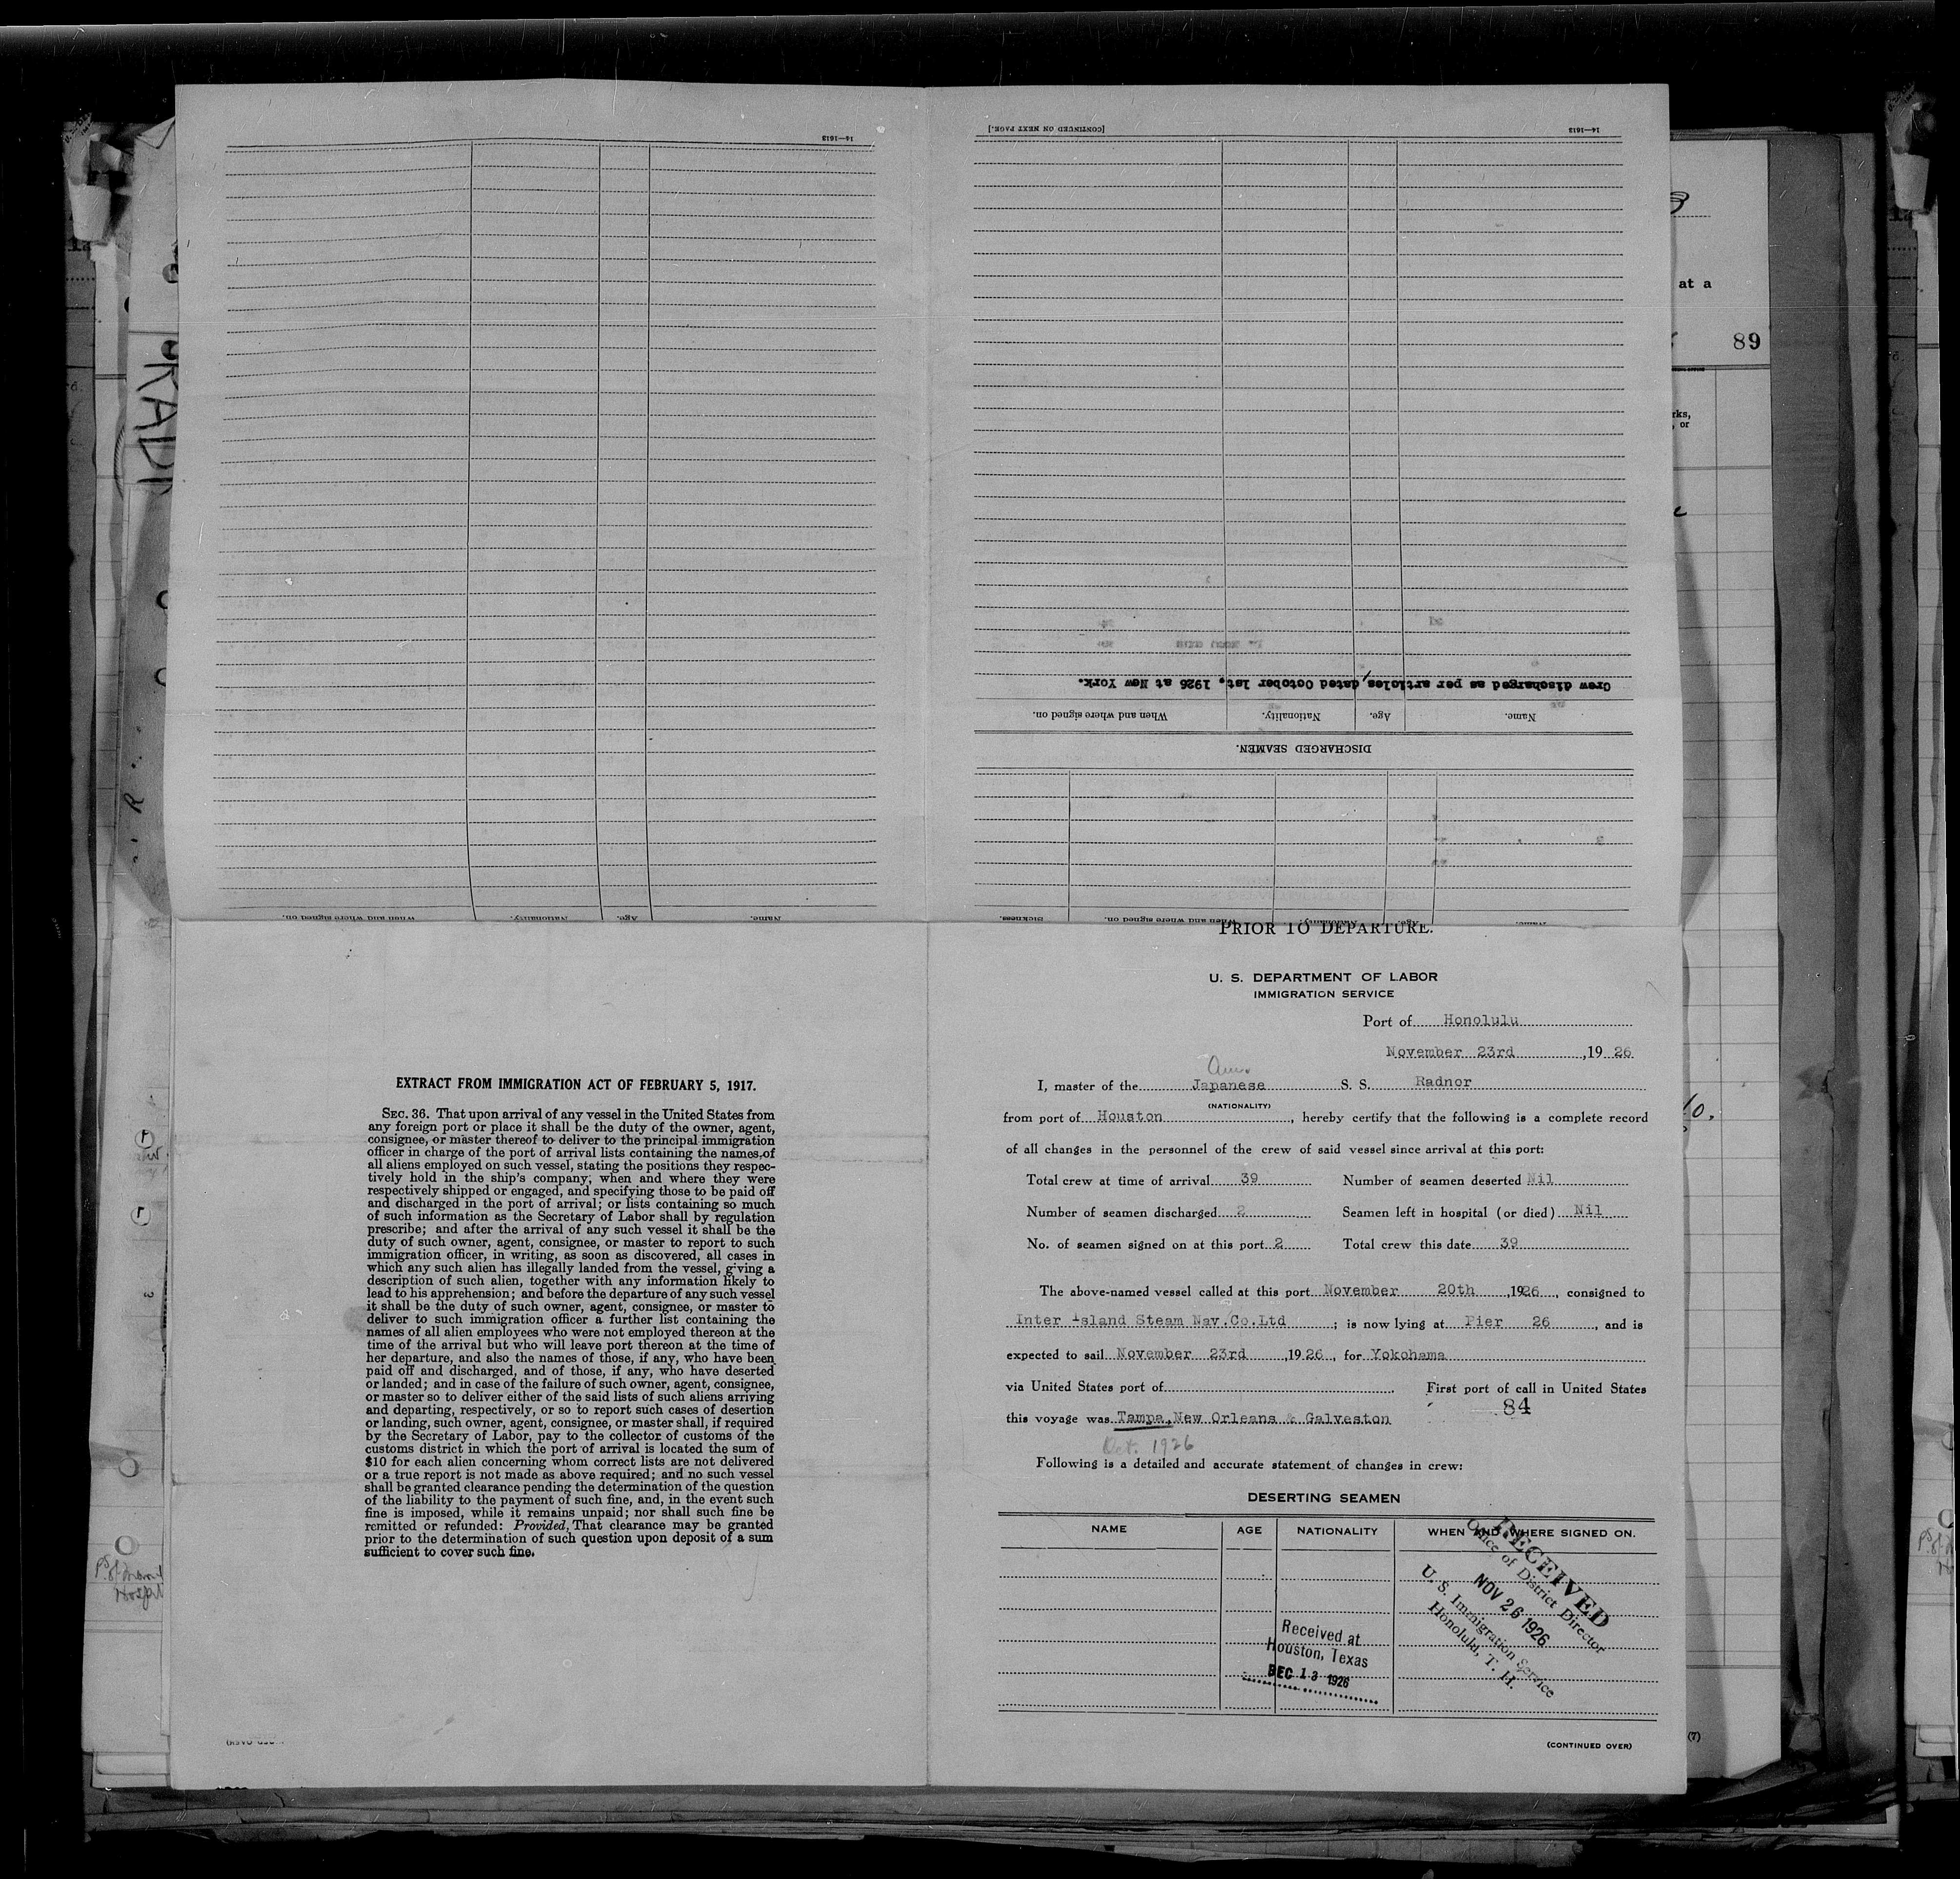 14—1613
[CONTINUED ON NEXT PAGE.]
14—1613
Crew discharged as per articles, dated October 1st, 1926 at New York.
Name. Age. Nationality. When and where signed on.
DISCHARGED SEAMEN.
Name. Age. Nationality. When and where signed on.
Name. Age. Nationality. When and where signed on. Sickness.
at a
89
rks,
, or
PRIOR TO DEPARTURE.
U. S. DEPARTMENT OF LABOR
IMMIGRATION SERVICE
Port of Honolulu
November 23rd ,19 26
Am.
I, master of the Japanese S. S. Radnor
(NATIONALITY)
from port of Houston , hereby certify that the following is a complete record
of all changes in the personnel of the crew of said vessel since arrival at this port:
Total crew at time of arrival 39 Number of seamen deserted Nil
Number of seamen discharged 2 Seamen left in hospital (or died) Nil
No. of seamen signed on at this port 2 Total crew this date 39
The above-named vessel called at this port November 20th ,1926 , consigned to
Inter Island Steam Nav.Co.Ltd ; is now lying at Pier 26 , and is
expected to sail November 23rd ,19 26 , for Yokohama
via United States port of . First port of call in United States
84
this voyage was Tampa, New Orleans & Galveston
Oct. 1926
Following is a detailed and accurate statement of changes in crew:
DESERTING SEAMEN
NAME AGE NATIONALITY WHEN AND WHERE SIGNED ON.
RECEIVED
Office of District Director
NOV 26 1926
U. S. Immigration Service
Honolulu, T. H.
Received at
Houston, Texas
DEC 13 1926
(CONTINUED OVER)
(7)
EXTRACT FROM IMMIGRATION ACT OF FEBRUARY 5, 1917.
SEC. 36. That upon arrival of any vessel in the United States from
any foreign port or place it shall be the duty of the owner, agent,
consignee, or master thereof to deliver to the principal immigration
officer in charge of the port of arrival lists containing the names of
all aliens employed on such vessel, stating the positions they respec-
tively hold in the ship's company, when and where they were
respectively shipped or engaged, and specifying those to be paid off
and discharged in the port of arrival; or lists containing so much
of such information as the Secretary of Labor shall by regulation
prescribe; and after the arrival of any such vessel it shall be the
duty of such owner, agent, consignee, or master to report to such
immigration officer, in writing, as soon as discovered, all cases in
which any such alien has illegally landed from the vessel, giving a
description of such alien, together with any information likely to
lead to his apprehension; and before the departure of any such vessel
it shall be the duty of such owner, agent, consignee, or master to
deliver to such immigration officer a further list containing the
names of all alien employees who were not employed thereon at the
time of the arrival but who will leave port thereon at the time of
her departure, and also the names of those, if any, who have been
paid off and discharged, and of those, if any, who have deserted
or landed; and in case of the failure of such owner, agent, consignee,
or master so to deliver either of the said lists of such aliens arriving
and departing, respectively, or so to report such cases of desertion
or landing, such owner, agent, consignee, or master shall, if required
by the Secretary of Labor, pay to the collector of customs of the
customs district in which the port of arrival is located the sum of
$10 for each alien concerning whom correct lists are not delivered
or a true report is not made as above required; and no such vessel
shall be granted clearance pending the determination of the question
of the liability to the payment of such fine, and, in the event such
fine is imposed, while it remains unpaid; nor shall such fine be
remitted or refunded: Provided, That clearance may be granted
prior to the determination of such question upon deposit of a sum
sufficient to cover such fine.